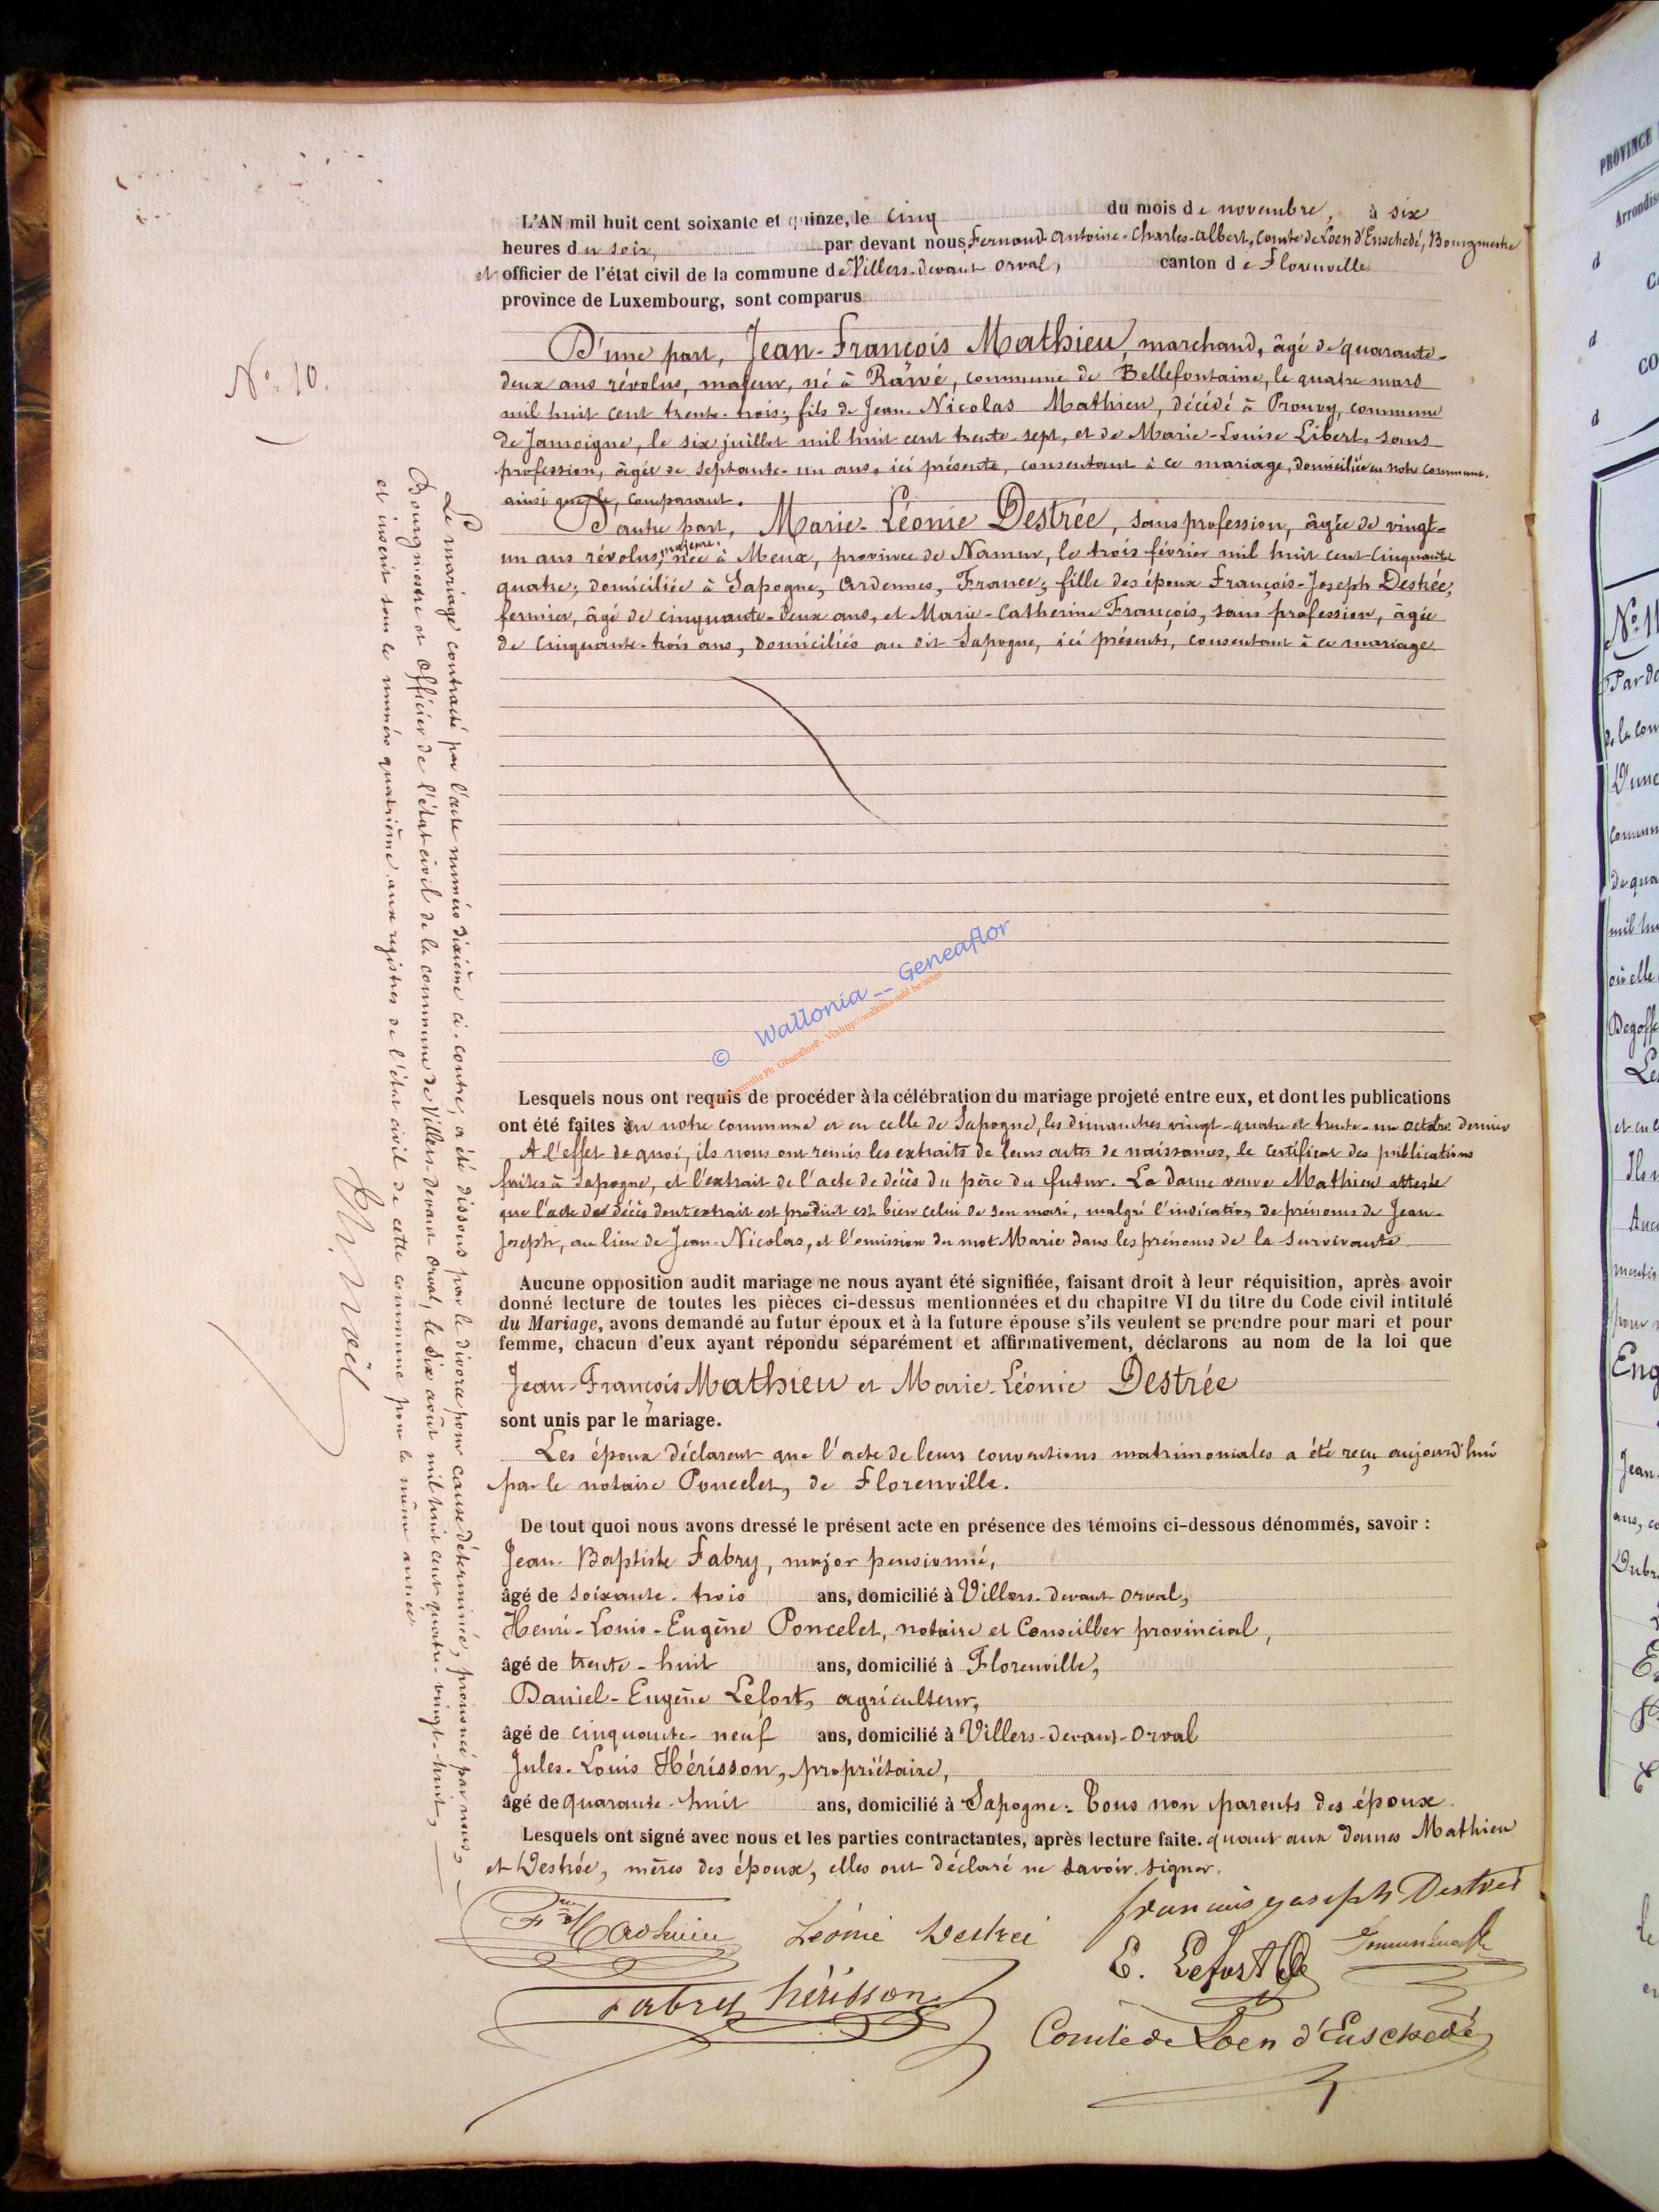 N° 10.
L'AN mil huit cent soixante et quinze, le cinq du mois de novembre, à six
heures du soir, par devant nous, Fernand-Antoine-Charles-Albert, Comte de Loen d'Enschedé, Bourgmestre
et officier de l'état civil de la commune de Villers-devant-Orval, canton de Florenville
province de Luxembourg, sont comparus
D'une part, Jean-François Mathieu, marchand, âgé de quarante-
deux ans révolus, majeur, né à Rawé, commune de Bellefontaine, le quatre mars
mil huit cent trente-trois; fils de Jean-Nicolas Mathieu, décédé à Prouvy, commune
de Jamoigne, le six juillet mil huit cent trente-sept, et de Marie-Louise Libert, sans
profession, âgée de septante-un ans, ici présente, consentant à ce mariage, domiciliée en notre commune.
ainsi que le comparant.
D'autre part, Marie-Léonie Destrée, sans profession, âgée de vingt-
un ans révolus, majeure, née à Meux, province de Namur, le trois février mil huit cent cinquante
quatre; domiciliée à Sapogne, Ardennes, France; fille des époux François-Joseph Destrée,
fermier, âgé de cinquante-deux ans, et Marie-Catherine François, sans profession, âgée
de cinquante-trois ans, domiciliés au dit Sapogne, ici présents, consentant à ce mariage.
© Wallonia -- Geneaflor
Lesquels nous ont requis de procéder à la célébration du mariage projeté entre eux, et dont les publications
ont été faites en notre commune et en celle de Sapogne, les dimanches vingt-quatre et trente-un octobre dernier
A l'effet de quoi, ils nous ont remis les extraits de leurs actes de naissances, le certificat des publications
faites à Sapogne, et l'extrait de l'acte de décès du père du futur. La dame veuve Mathieu atteste
que l'acte de décès dont extrait est produit est bien celui de son mari, malgré l'indication de prénoms de Jean-
Joseph, au lieu de Jean-Nicolas, et l'omission du mot Marie dans les prénoms de la survivante
Aucune opposition audit mariage ne nous ayant été signifiée, faisant droit à leur réquisition, après avoir
donné lecture de toutes les pièces ci-dessus mentionnées et du chapitre VI du titre du Code civil intitulé
du Mariage, avons demandé au futur époux et à la future épouse s'ils veulent se prendre pour mari et pour
femme, chacun d'eux ayant répondu séparément et affirmativement, déclarons au nom de la loi que
Jean-François Mathieu et Marie-Léonie Destrée
sont unis par le mariage.
Les époux déclarent que l'acte de leurs conventions matrimoniales a été reçu aujourd'hui
par le notaire Poncelet, de Florenville.
De tout quoi nous avons dressé le présent acte en présence des témoins ci-dessous dénommés, savoir :
Jean-Baptiste Fabry, major pensionné,
âgé de soixante-trois ans, domicilié à Villers-devant-Orval,
Henri-Louis-Eugène Poncelet, notaire et Conseiller provincial,
âgé de trente-huit ans, domicilié à Florenville,
Daniel-Eugène Lefort, agriculteur,
âgé de cinquante-neuf ans, domicilié à Villers-devant-Orval
Jules-Louis Hérisson, propriétaire,
âgé de quarante-huit ans, domicilié à Sapogne. Tous non parents des époux
Lesquels ont signé avec nous et les parties contractantes, après lecture faite. quant aux dames Mathieu
et Destrée, mères des époux, elles ont déclaré ne savoir signer.
Mathieu Léonie Destrée francois joseph Destrée
E. Lefort
Fabry hérisson
Comte de Loen d'Enschedé
Le mariage contracté par l'acte numéro dixième ci-contre, a été dissous par le divorce pour cause déterminée, prononcé par nous,
Bourgmestre et Officier de l'état civil de la commune de Villers-devant-Orval, le dix août mil huit cent quatre-vingt-huit,
et inscrit sous le numéro quatrième aux registres de l'état civil de cette commune pour la même année.
PROVINCE
N° 11